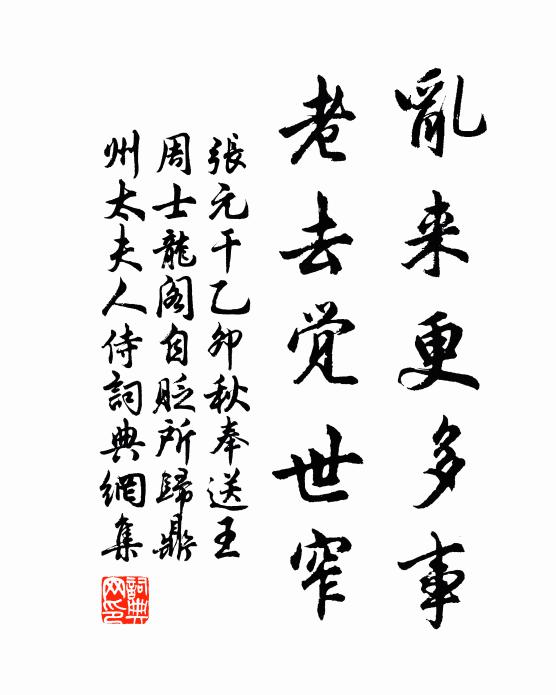 亂来更多事
老去覺世窄
張元干乙卯秋奉送王
周士龍阁自貶所歸鼎
州太夫人侍詞典網集
詞典
网印